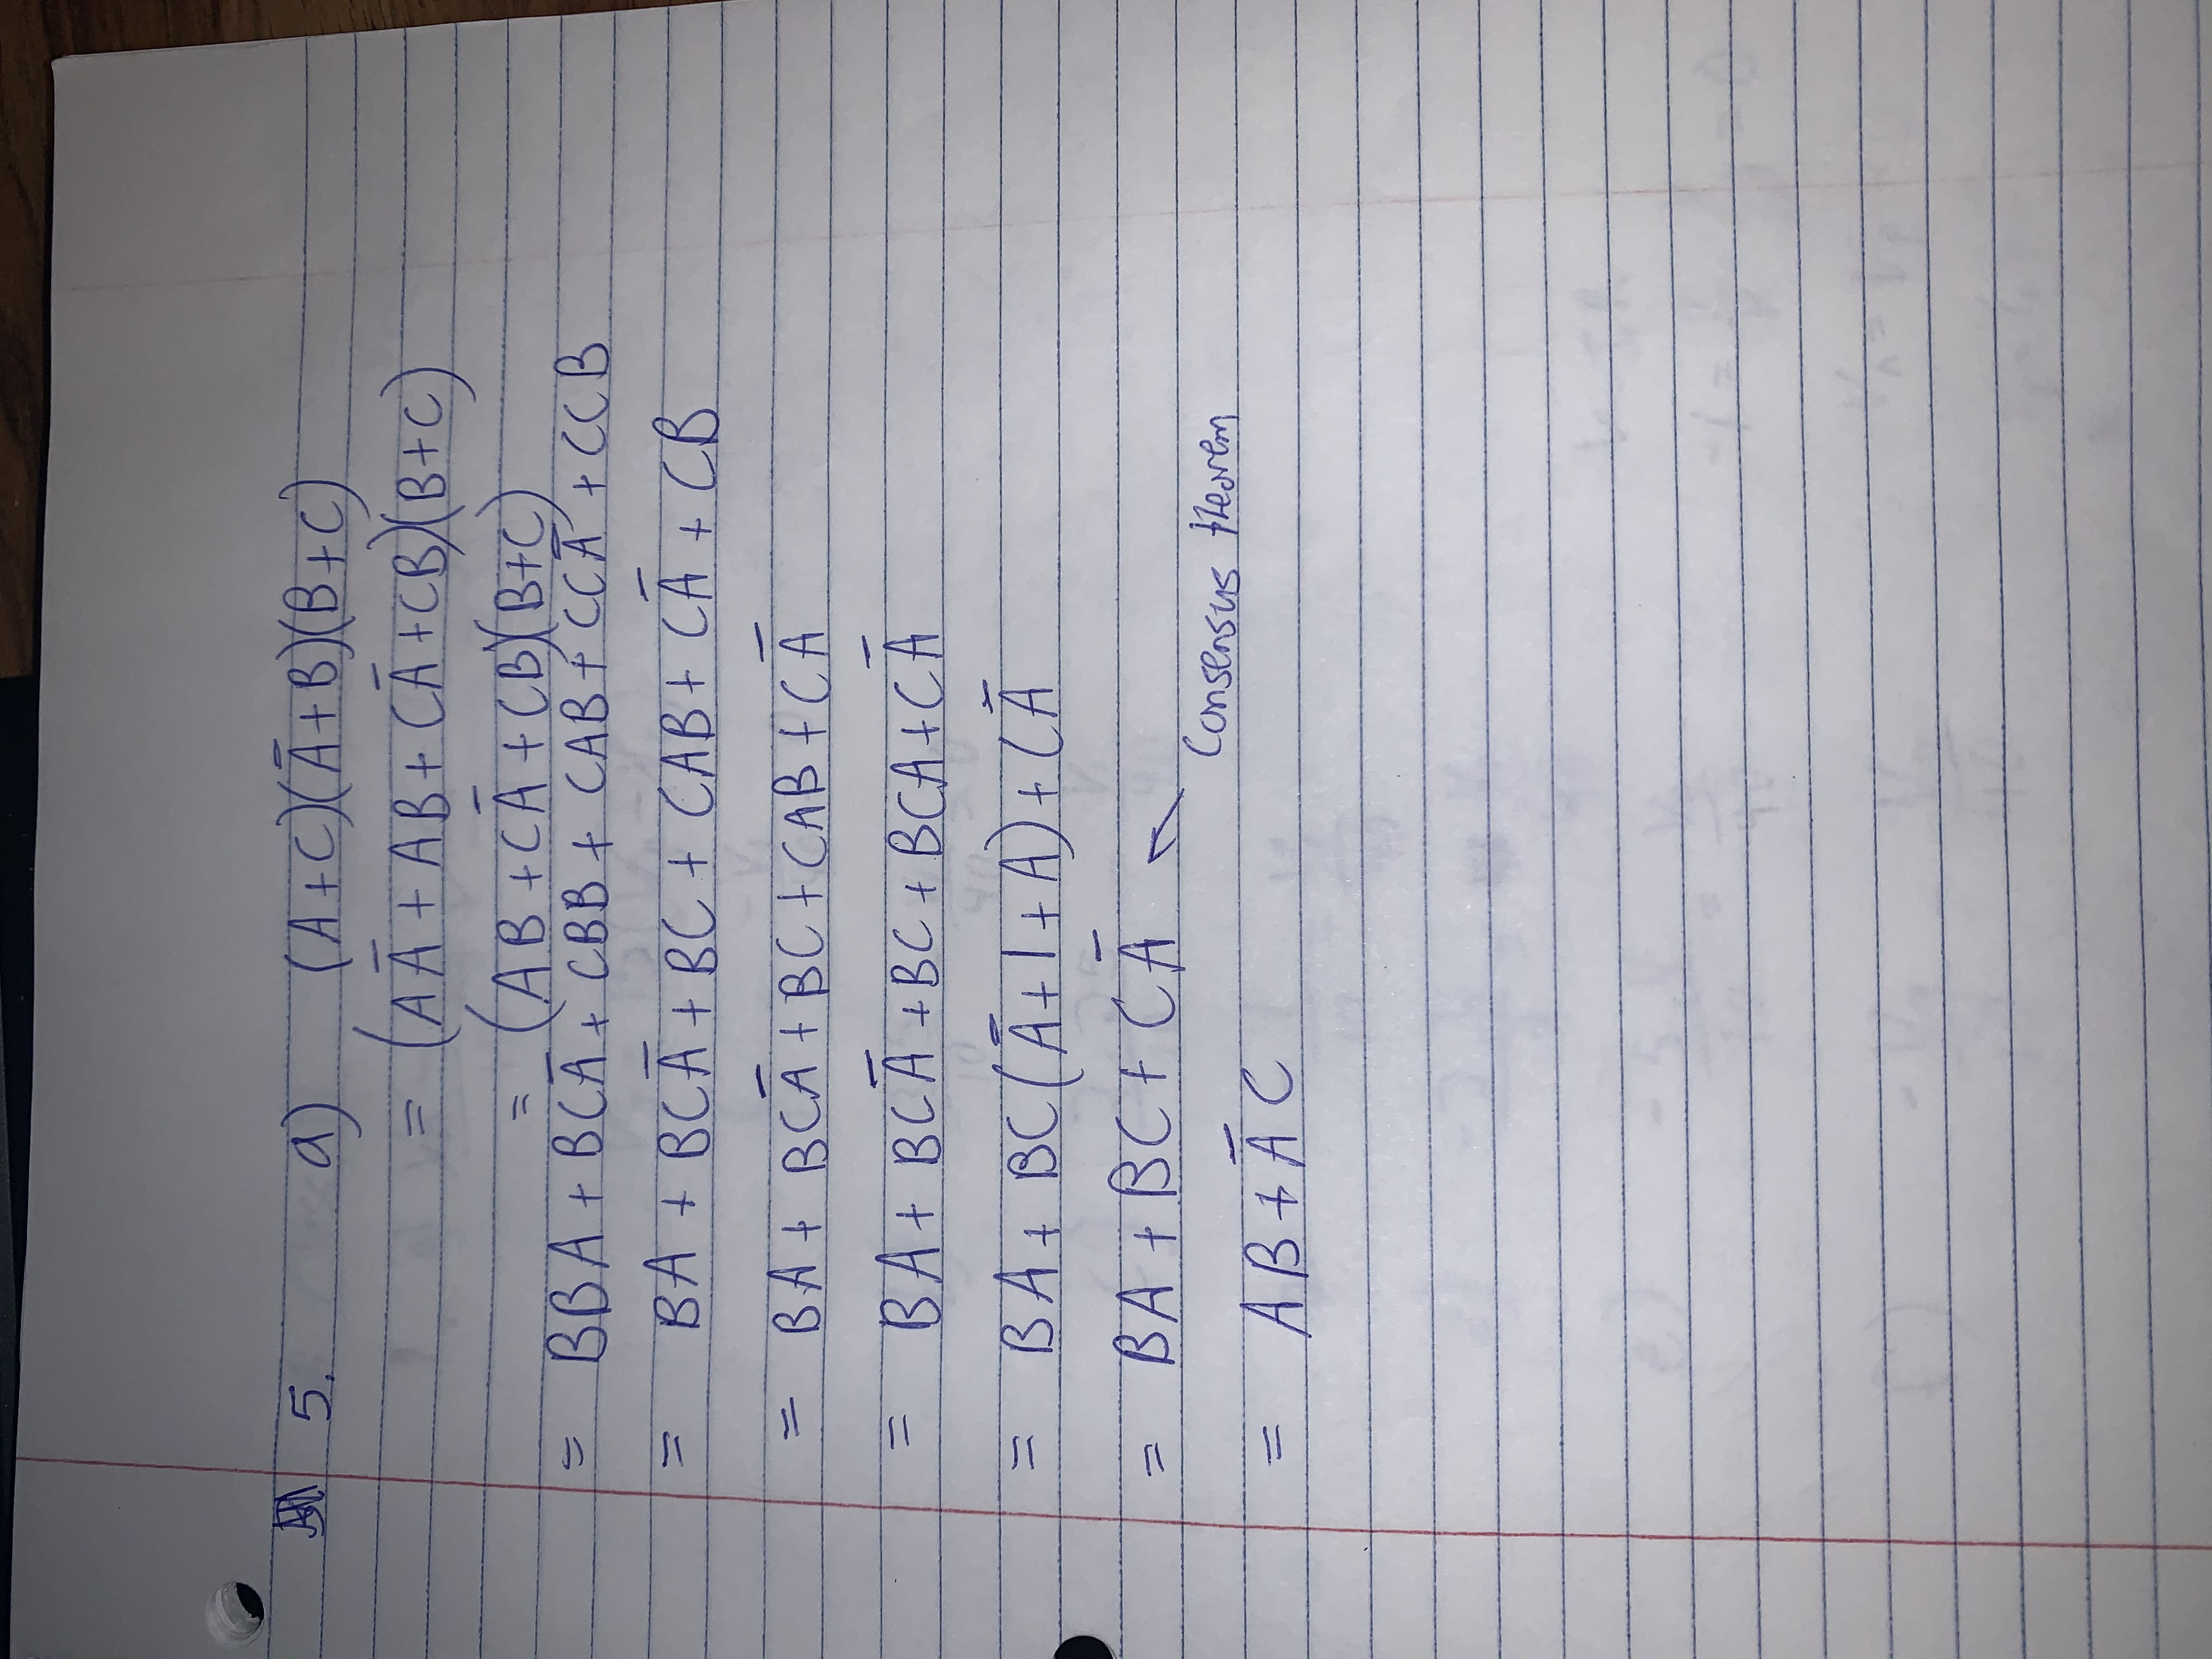 5. a) (A+C)(Ā+B)(B+C)
= (AĀ + AB + CĀ + CB)(B+C)
= (AB + CĀ + CB)(B+C)
= BBA + BCĀ + CBB + CAB + CCĀ + CCB
= BA + BCĀ + BC + CAB + CĀ + CB
= BA + BCĀ + BC + CAB + CĀ
= BA + BCĀ + BC + BCA + CĀ
= BA + BC(Ā + 1 + A) + CĀ
= BA + BC + CĀ
Consensus theorem
= AB + ĀC